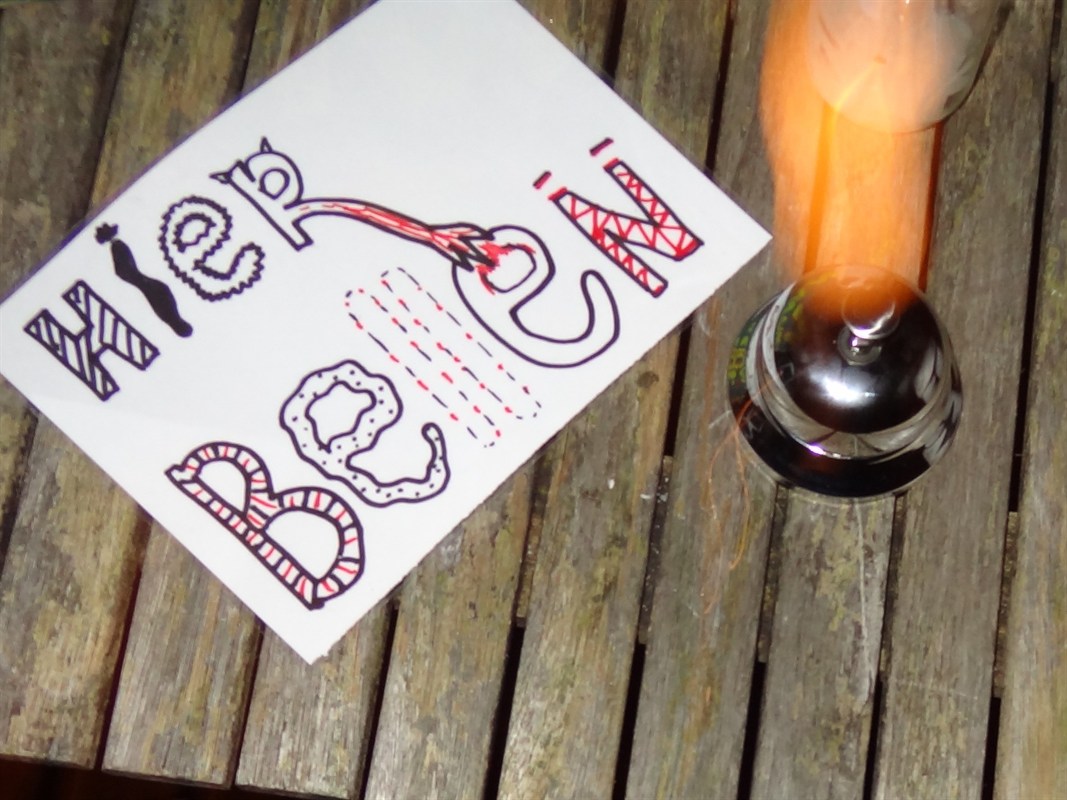 HieR
BelleN